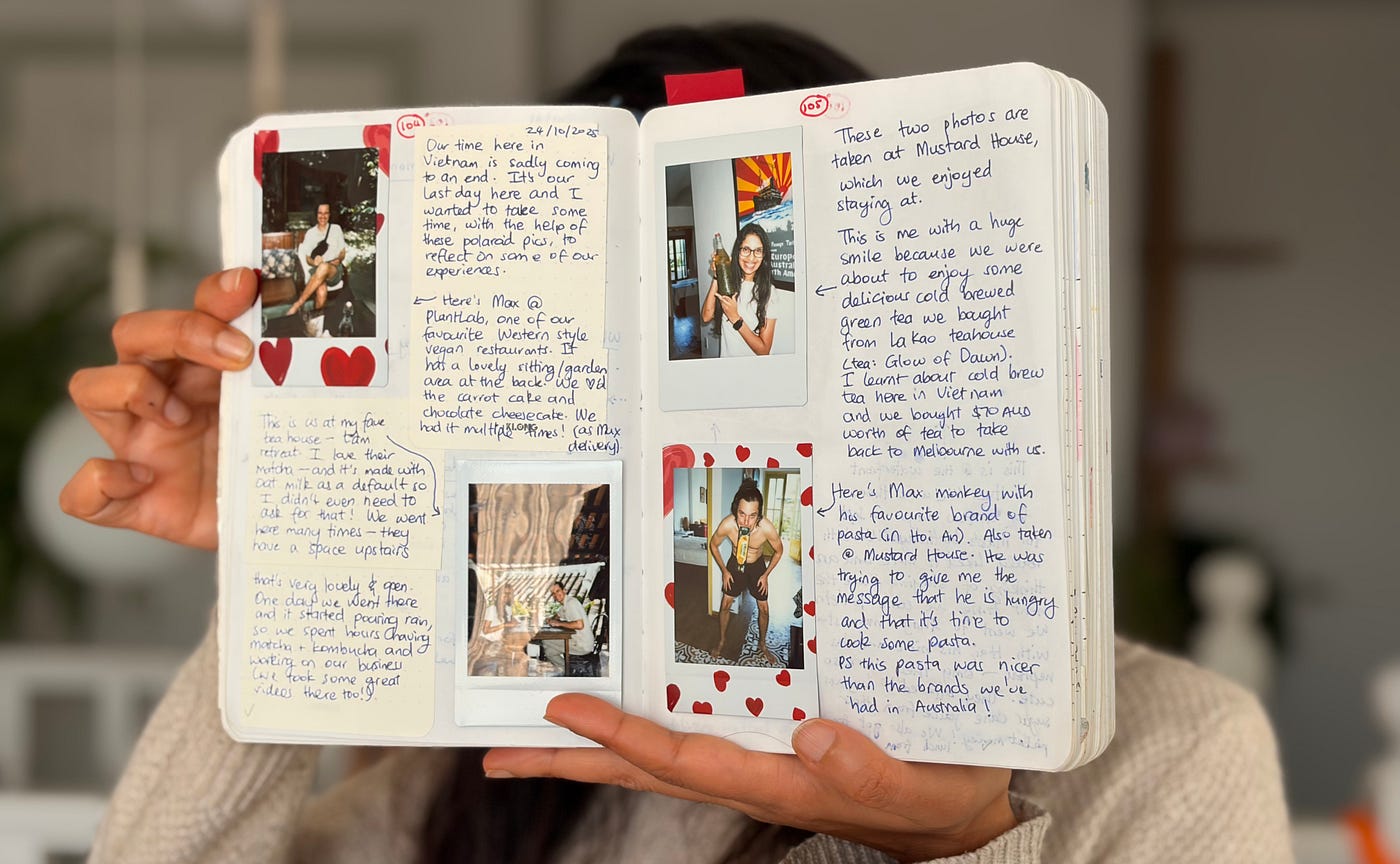 104
24/10/2025
Our time here in
Vietnam is sadly coming
to an end. It's our
last day here and I
wanted to take some
time, with the help of
these polaroid pics, to
reflect on some of our
experiences.
← Here's Max @
PlantLab, one of our
favourite Western style
vegan restaurants. It
has a lovely sitting/garden
area at the back. We ♡d
the carrot cake and
chocolate cheesecake. We
had it multiple times! (as Max
delivery)
This is us at my fave
tea house – tam
retreat. I love their
matcha – and it's made with
oat milk as a default so
I didn't even need to
ask for that! We went
here many times – they
have a space upstairs
that's very lovely & open.
One day we went there
and it started pouring rain,
so we spent hours (having
matcha + kombucha and
working on our business
(we took some great
videos there too!)
105
These two photos are
taken at Mustard House,
which we enjoyed
staying at.
This is me with a huge
smile because we were
← about to enjoy some
delicious cold brewed
green tea we bought
from Lá Kao teahouse
(tea: Glow of Dawn).
I learnt about cold brew
tea here in Vietnam
and we bought $70 AUD
worth of tea to take
back to Melbourne with us.
Here's Max monkey with
his favourite brand of
pasta (in Hoi An). Also taken
@ Mustard House. He was
trying to give me the
message that he is hungry
and that it's time to
cook some pasta.
PS this pasta was nicer
than the brands we've
had in Australia!
Europe
Austral